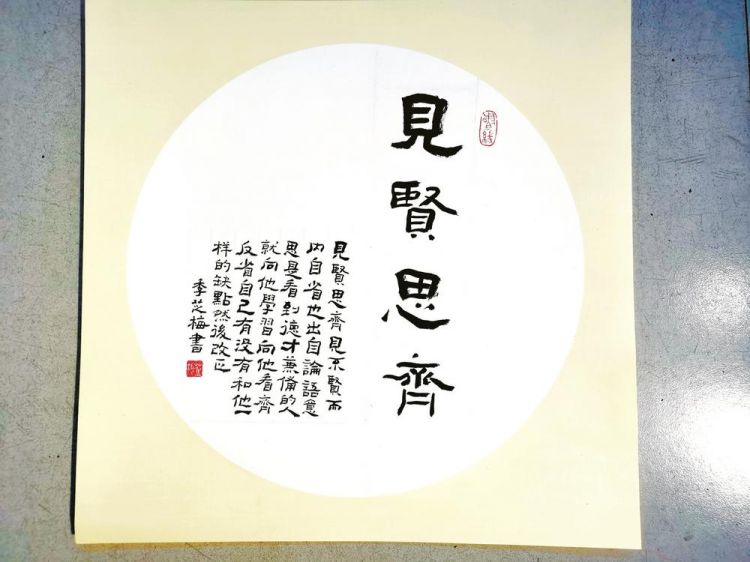 見賢思齊
見賢思齊見不賢而
内自省也出自論語意
思是看到德才兼備的人
就向他學習向他看齊
反省自己有没有和他一
样的缺點然後改正
季芝梅書